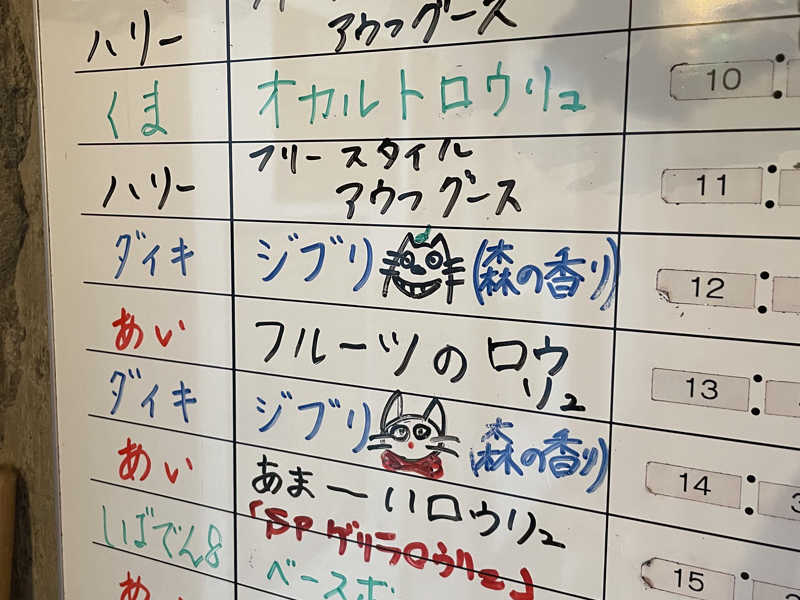 ハリー
アウフグース
10
くま
オカルトロウリュ
ハリー
フリースタイル
アウフグース
11
ダイキ
ジブリ (森の香り)
12
あい
フルーツのロウ
リュ
13
ダイキ
ジブリ (森の香り)
14
あい
あま〜いロウリュ
しばでん8
「SPゲリラロウリュ」
ベースボ
15
あ